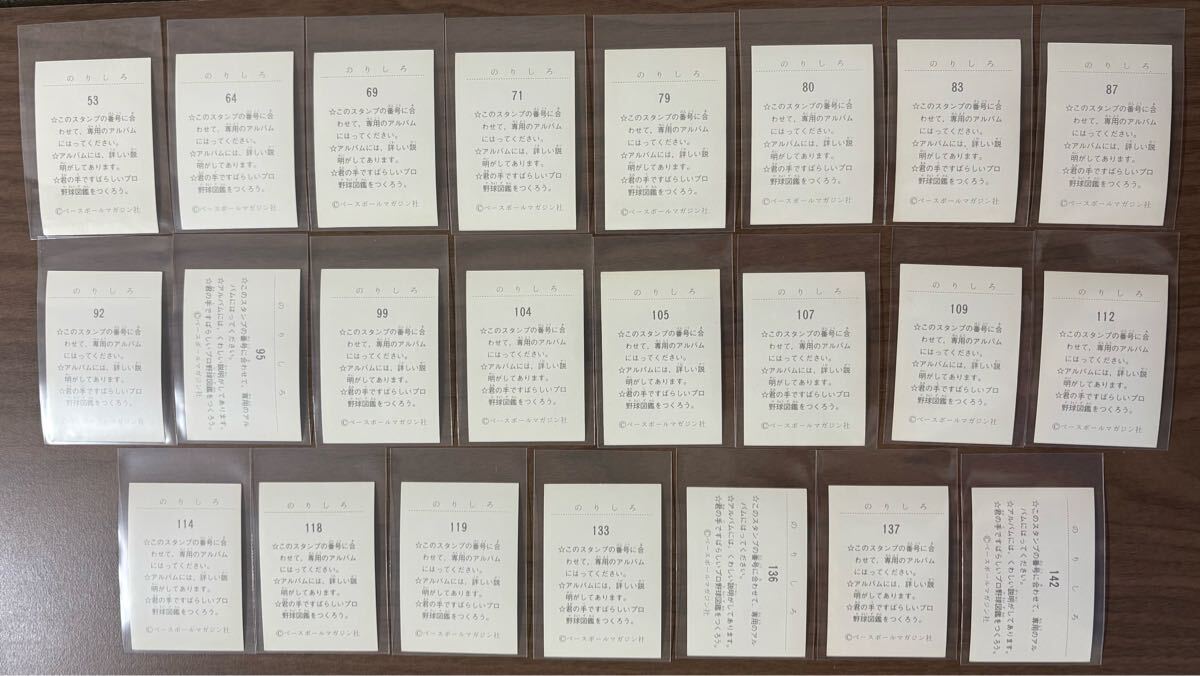 のりしろ
53
☆このスタンプの番号に合
わせて、専用のアルバム
にはってください。
☆アルバムには、詳しい説
明がしてあります。
☆君の手ですばらしいプロ
野球図鑑をつくろう。
©ベースボールマガジン社
のりしろ
64
☆このスタンプの番号に合
わせて、専用のアルバム
にはってください。
☆アルバムには、詳しい説
明がしてあります。
☆君の手ですばらしいプロ
野球図鑑をつくろう。
©ベースボールマガジン社
のりしろ
69
☆このスタンプの番号に合
わせて、専用のアルバム
にはってください。
☆アルバムには、詳しい説
明がしてあります。
☆君の手ですばらしいプロ
野球図鑑をつくろう。
©ベースボールマガジン社
のりしろ
71
☆このスタンプの番号に合
わせて、専用のアルバム
にはってください。
☆アルバムには、詳しい説
明がしてあります。
☆君の手ですばらしいプロ
野球図鑑をつくろう。
©ベースボールマガジン社
のりしろ
79
☆このスタンプの番号に合
わせて、専用のアルバム
にはってください。
☆アルバムには、詳しい説
明がしてあります。
☆君の手ですばらしいプロ
野球図鑑をつくろう。
©ベースボールマガジン社
のりしろ
80
☆このスタンプの番号に合
わせて、専用のアルバム
にはってください。
☆アルバムには、詳しい説
明がしてあります。
☆君の手ですばらしいプロ
野球図鑑をつくろう。
©ベースボールマガジン社
のりしろ
83
☆このスタンプの番号に合
わせて、専用のアルバム
にはってください。
☆アルバムには、詳しい説
明がしてあります。
☆君の手ですばらしいプロ
野球図鑑をつくろう。
©ベースボールマガジン社
のりしろ
87
☆このスタンプの番号に合
わせて、専用のアルバム
にはってください。
☆アルバムには、詳しい説
明がしてあります。
☆君の手ですばらしいプロ
野球図鑑をつくろう。
©ベースボールマガジン社
のりしろ
92
☆このスタンプの番号に合
わせて、専用のアルバム
にはってください。
☆アルバムには、詳しい説
明がしてあります。
☆君の手ですばらしいプロ
野球図鑑をつくろう。
©ベースボールマガジン社
のりしろ
95
☆このスタンプの番号に合わせて、専用のアル
バムにはってください。
☆アルバムには、くわしい説明がしてあります。
☆君の手ですばらしいプロ野球図鑑をつくろう。
©ベースボールマガジン社
のりしろ
99
☆このスタンプの番号に合
わせて、専用のアルバム
にはってください。
☆アルバムには、詳しい説
明がしてあります。
☆君の手ですばらしいプロ
野球図鑑をつくろう。
©ベースボールマガジン社
のりしろ
104
☆このスタンプの番号に合
わせて、専用のアルバム
にはってください。
☆アルバムには、詳しい説
明がしてあります。
☆君の手ですばらしいプロ
野球図鑑をつくろう。
©ベースボールマガジン社
のりしろ
105
☆このスタンプの番号に合
わせて、専用のアルバム
にはってください。
☆アルバムには、詳しい説
明がしてあります。
☆君の手ですばらしいプロ
野球図鑑をつくろう。
©ベースボールマガジン社
のりしろ
107
☆このスタンプの番号に合
わせて、専用のアルバム
にはってください。
☆アルバムには、詳しい説
明がしてあります。
☆君の手ですばらしいプロ
野球図鑑をつくろう。
©ベースボールマガジン社
のりしろ
109
☆このスタンプの番号に合
わせて、専用のアルバム
にはってください。
☆アルバムには、詳しい説
明がしてあります。
☆君の手ですばらしいプロ
野球図鑑をつくろう。
©ベースボールマガジン社
のりしろ
112
☆このスタンプの番号に合
わせて、専用のアルバム
にはってください。
☆アルバムには、詳しい説
明がしてあります。
☆君の手ですばらしいプロ
野球図鑑をつくろう。
©ベースボールマガジン社
のりしろ
114
☆このスタンプの番号に合
わせて、専用のアルバム
にはってください。
☆アルバムには、詳しい説
明がしてあります。
☆君の手ですばらしいプロ
野球図鑑をつくろう。
©ベースボールマガジン社
のりしろ
118
☆このスタンプの番号に合
わせて、専用のアルバム
にはってください。
☆アルバムには、詳しい説
明がしてあります。
☆君の手ですばらしいプロ
野球図鑑をつくろう。
©ベースボールマガジン社
のりしろ
119
☆このスタンプの番号に合
わせて、専用のアルバム
にはってください。
☆アルバムには、詳しい説
明がしてあります。
☆君の手ですばらしいプロ
野球図鑑をつくろう。
©ベースボールマガジン社
のりしろ
133
☆このスタンプの番号に合
わせて、専用のアルバム
にはってください。
☆アルバムには、詳しい説
明がしてあります。
☆君の手ですばらしいプロ
野球図鑑をつくろう。
©ベースボールマガジン社
のりしろ
136
☆このスタンプの番号に合わせて、専用のアル
バムにはってください。
☆アルバムには、くわしい説明がしてあります。
☆君の手ですばらしいプロ野球図鑑をつくろう。
©ベースボールマガジン社
のりしろ
137
☆このスタンプの番号に合
わせて、専用のアルバム
にはってください。
☆アルバムには、詳しい説
明がしてあります。
☆君の手ですばらしいプロ
野球図鑑をつくろう。
©ベースボールマガジン社
のりしろ
142
☆このスタンプの番号に合わせて、専用のアル
バムにはってください。
☆アルバムには、くわしい説明がしてあります。
☆君の手ですばらしいプロ野球図鑑をつくろう。
©ベースボールマガジン社